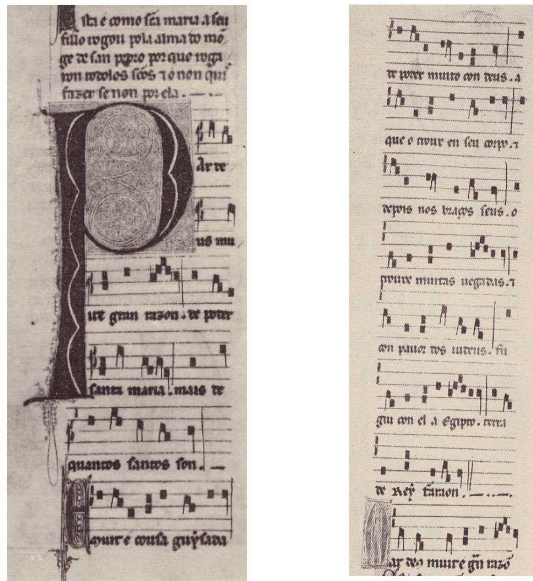 sta e como sca maria a seu
fillo rogou pola alma do mō
ge de san pedro por que roga
ron todolos scos ⁊ o non qui
fazer se non por ela.
Par de
us mu
yte gran razon. de poder
santa maria. mais de
quantos santos son.
Muit e cousa guysada
de poder muito con deus. a
que o troux en seu corpo. ⁊
depois nos braços seus. o
trouxe muitas uegadas. ⁊
con pauor dos iudeus. fu
giu con el a Egipto. terra
de Rey faraon.
Par d's muit e gñ razō